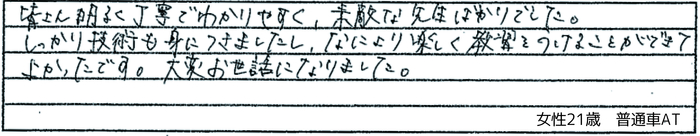 皆さん明るく丁寧でわかりやすく、素敵な先生ばかりでした。
しっかり技術も身につきましたし、なにより楽しく教習をうけることができて
よかったです。大変お世話になりました。
女性21歳　普通車AT